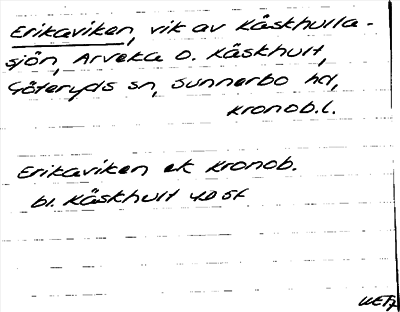 Erikaviken, vik av Kåskhulla-
sjön, Arveka o. Kåskhult,
Göteryds sn, Sunnerbo hd,
kronob.l.
Erikaviken ek Kronob.
bl. Kåskhult 4D 5f